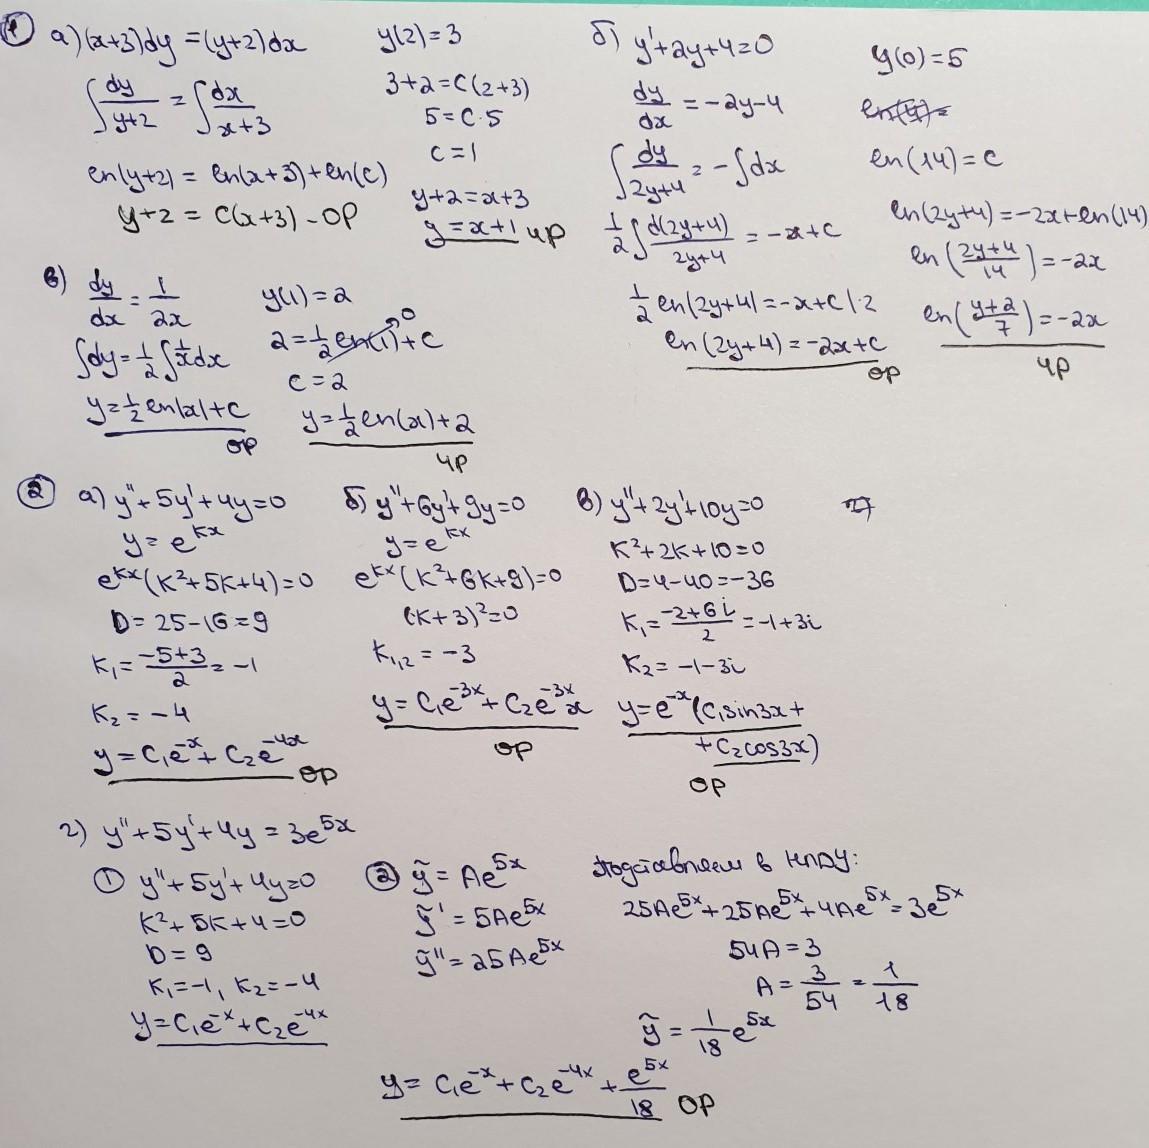 ① а) (x+3)dy = (y+2)dx
∫ dy/(y+2) = ∫ dx/(x+3)
ln(y+2) = ln(x+3) + ln(c)
y+2 = c(x+3) - ОР
y(2)=3
3+2=C(2+3)
5=C·5
C=1
y+2=x+3
y=x+1 ЧР
б) y'+2y+4=0
dy/dx = -2y-4
∫ dy/(2y+4) = -∫dx
1/2 ∫ d(2y+4)/(2y+4) = -x+C
1/2 ln(2y+4) = -x+C |·2
ln(2y+4) = -2x+C
ОР
y(0)=5
ln(14)=C
ln(2y+4)=-2x+ln(14)
ln((2y+4)/14)=-2x
ln((y+2)/7)=-2x
ЧР
в) dy/dx = 1/2x
∫dy = 1/2 ∫ 1/x dx
y=1/2 ln|x|+C
ОР
y(1)=2
2=1/2 ln(1)+C 0
C=2
y=1/2 ln(x)+2
ЧР
② а) y''+5y'+4y=0
y=e^{kx}
e^{kx}(k²+5k+4)=0
D=25-16=9
k₁=(-5+3)/2=-1
k₂=-4
y=C₁e^{-x}+C₂e^{-4x}
ОР
б) y''+6y'+9y=0
y=e^{kx}
e^{kx}(k²+6k+9)=0
(k+3)²=0
k₁,₂=-3
y=C₁e^{-3x}+C₂e^{-3x}x
ОР
в) y''+2y'+10y=0
k²+2k+10=0
D=4-40=-36
k₁=(-2+6i)/2=-1+3i
k₂=-1-3i
y=e^{-x}(C₁sin3x+
+C₂cos3x)
ОР
г) y''+5y'+4y=3e^{5x}
① y''+5y'+4y=0
k²+5k+4=0
D=9
k₁=-1, k₂=-4
y=C₁e^{-x}+C₂e^{-4x}
② ỹ=Ae^{5x}
ỹ'=5Ae^{5x}
ỹ''=25Ae^{5x}
Подставляем в НЛДУ:
25Ae^{5x}+25Ae^{5x}+4Ae^{5x}=3e^{5x}
54A=3
A=3/54=1/18
ỹ=1/18 e^{5x}
y=C₁e^{-x}+C₂e^{-4x}+e^{5x}/18 ОР